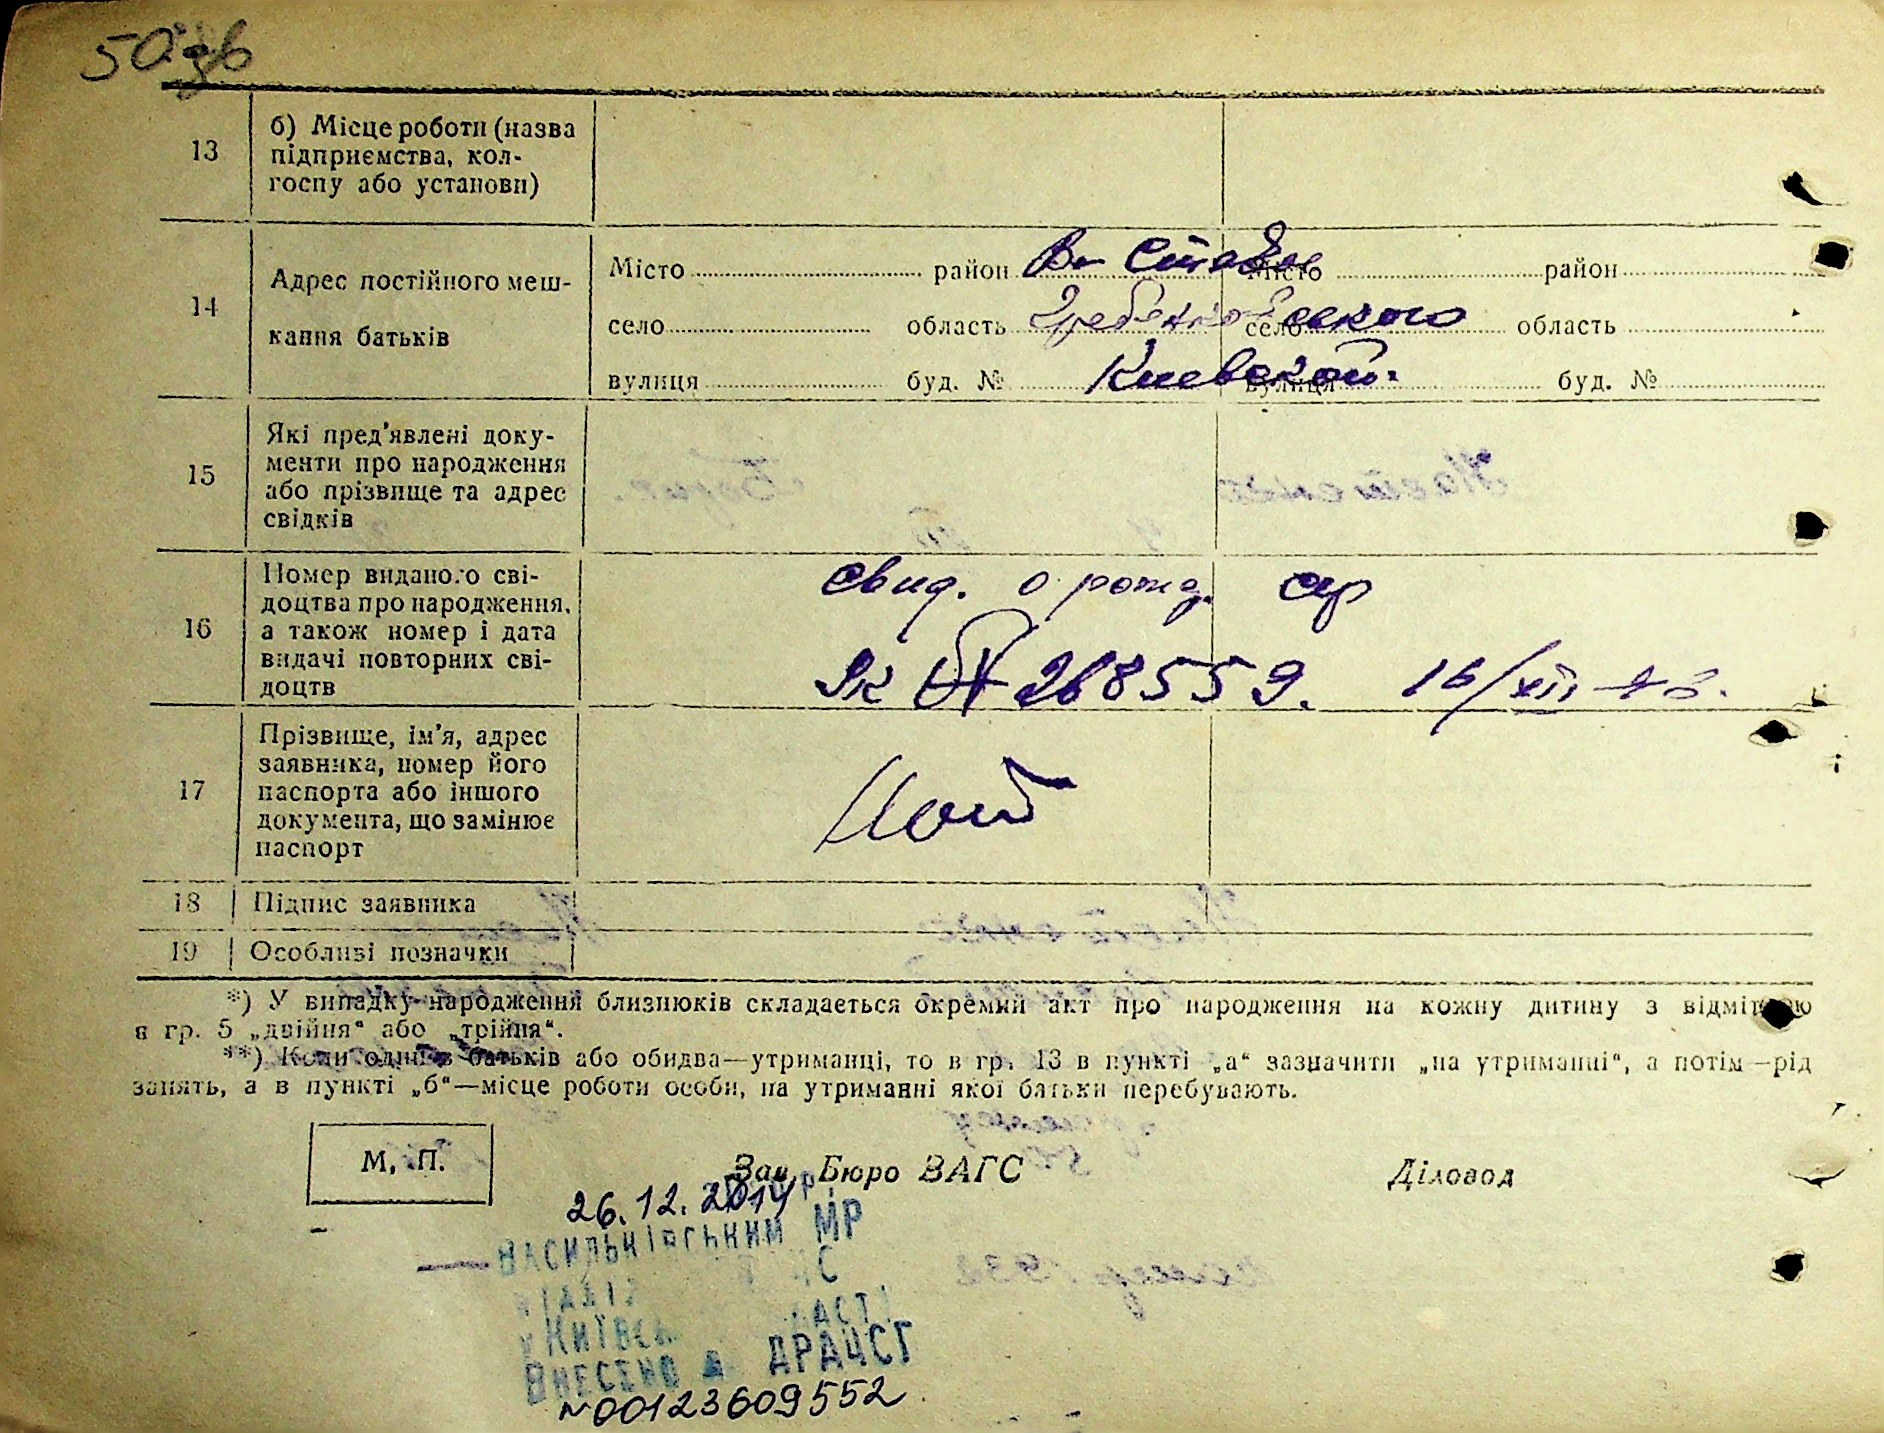 50 зв
13
б) Місце роботи (назва
підприємства, кол-
госпу або установи)
14
Адрес постійного меш-
кання батьків
Місто район Місто район
село область село область
вулиця буд. № вулиця буд. №
Гребенковского
Киевской.
15
Які пред'явлені доку-
менти про народження
або прізвище та адрес
свідків
16
Номер виданого сві-
доцтва про народження,
а також номер і дата
видачі повторних сві-
доцтв
свид. о рожд. сер
268559. 16/XII
17
Прізвище, ім'я, адрес
заявника, номер його
паспорта або іншого
документа, що замінює
паспорт
18 Підпис заявника
19 Особливі позначки
*) У випадку народження близнюків складається окремий акт про народження на кожну дитину з відміткою
в гр. 5 „двійня“ або „трійня“.
**) Коли один з батьків або обидва—утриманці, то в гр. 13 в пункті „а“ зазначити „на утриманні“, а потім—рід
занять, а в пункті „б“—місце роботи особи, на утриманні якої батьки перебувають.
М. П.
Зав. Бюро ВАГС
Діловод
26.12.2014 р.
ВАСИЛЬКІВСЬКИМ МР
ВНЕСЕНО ДРАЦСГ
№00123609552